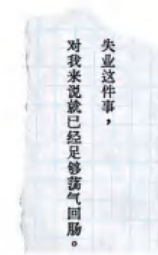 失业这件事，
对我来说就已经足够荡气回肠。